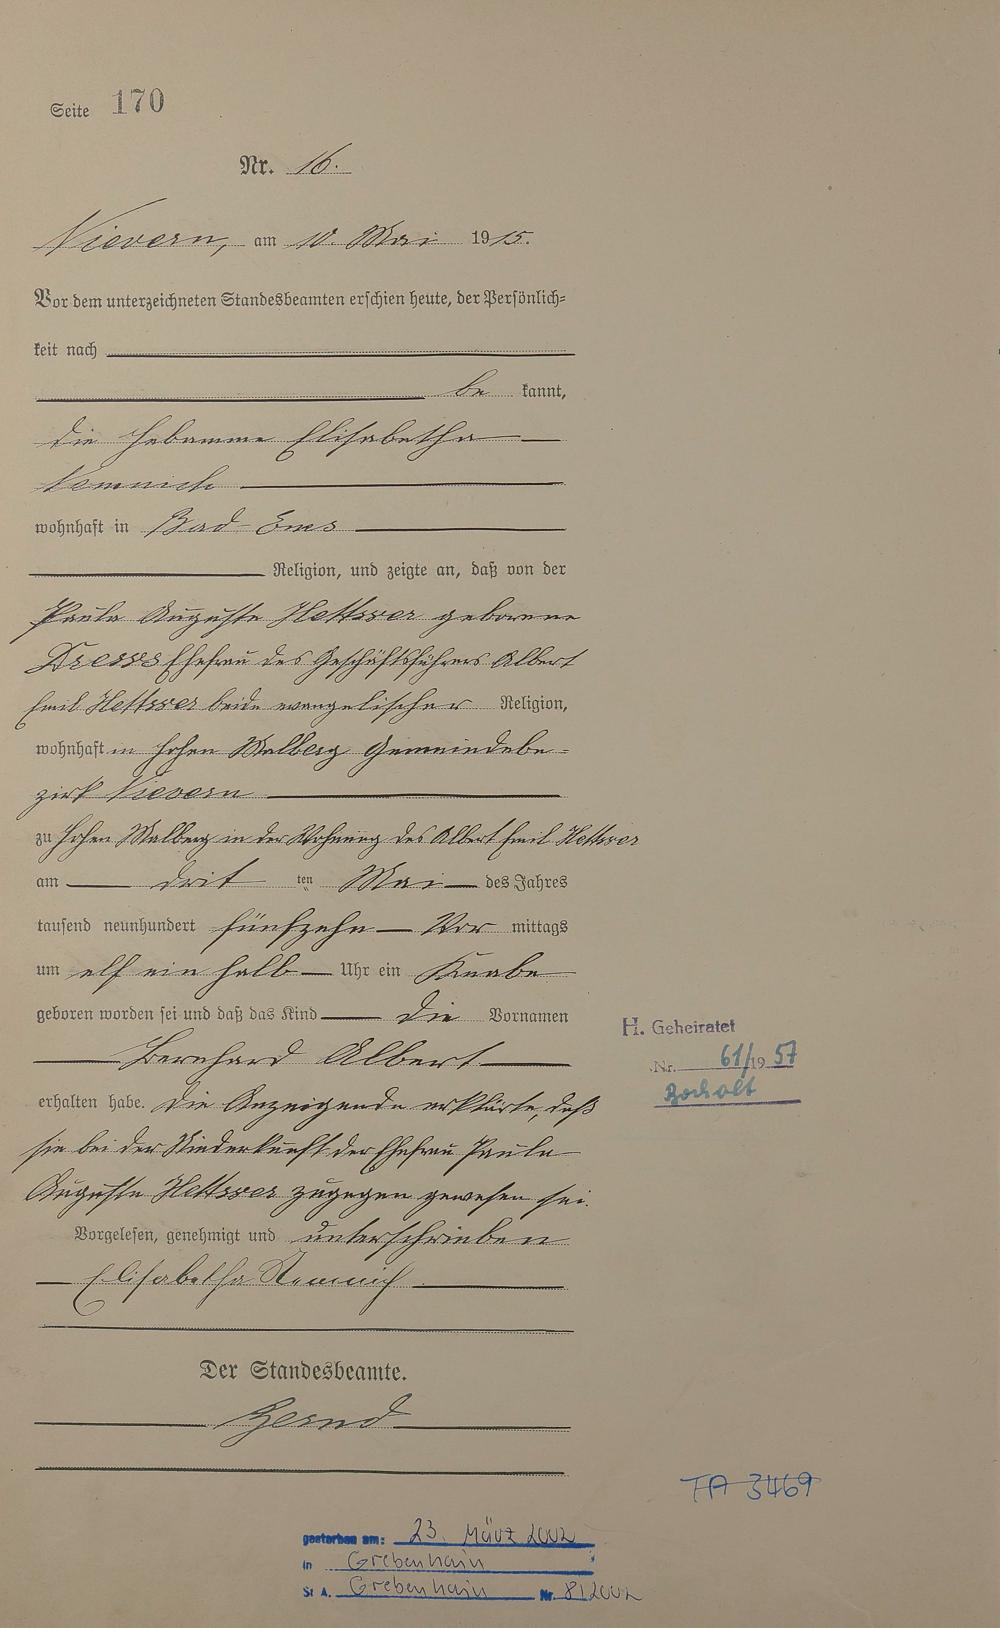 Seite 170
Nr. 16.
Nievern, am 10. Mai 1915.
Vor dem unterzeichneten Standesbeamten erschien heute, der Persönlich-
keit nach
be kannt,
die Hebamme Elisabetha
Nemnich
wohnhaft in Bad-Ems
Religion, und zeigte an, daß von der
Paula Auguste geborene
Ehefrau des Geschäftsführers Albert
Emil beide evangelischer Religion,
wohnhaft in Hohen Malberg Gemeindebe-
zirk Nievern
zu Hohen Malberg in der Wohnung des Albert Emil
am drit ten Mai des Jahres
tausend neunhundert fünfzehn Vor mittags
um elf ein halb Uhr ein Knabe
geboren worden sei und daß das Kind die Vornamen
Bernhard Albert
erhalten habe. Die Anzeigende erklärte, daß
sie bei der Niederkunft der Ehefrau Paula
Auguste zugegen gewesen sei.
Vorgelesen, genehmigt und unterschrieben
Elisabetha Nemnich
Der Standesbeamte.
H. Geheiratet
Nr. 61/1957
Bocholt
TA 3469
gestorben am: 23. März 2002
in Grebenhain
St A. Grebenhain Nr. 8/2002